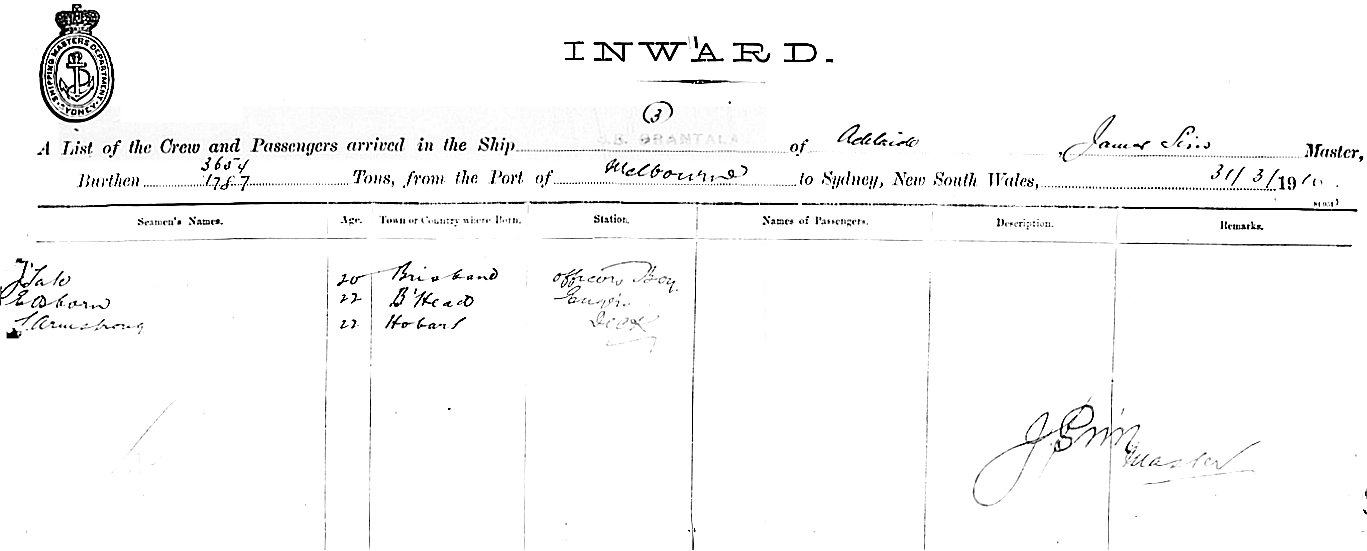 SHIPPING MASTERS DEPARTMENT SYDNEY
INWARD.
(3)
A List of the Crew and Passengers arrived in the Ship S.S. GRANTALA of Adelaide, James Sim Master,
Burthen 3654 1787 Tons, from the Port of Melbourne to Sydney, New South Wales, 31/3/1910
Seamen's Names. Age. Town or Country where Born. Station. Names of Passengers. Description. Remarks.
20 Brisband Officers Boy.
E Osborn 22 B'Head
Armstrong 22 Hobart
J Sim
Master